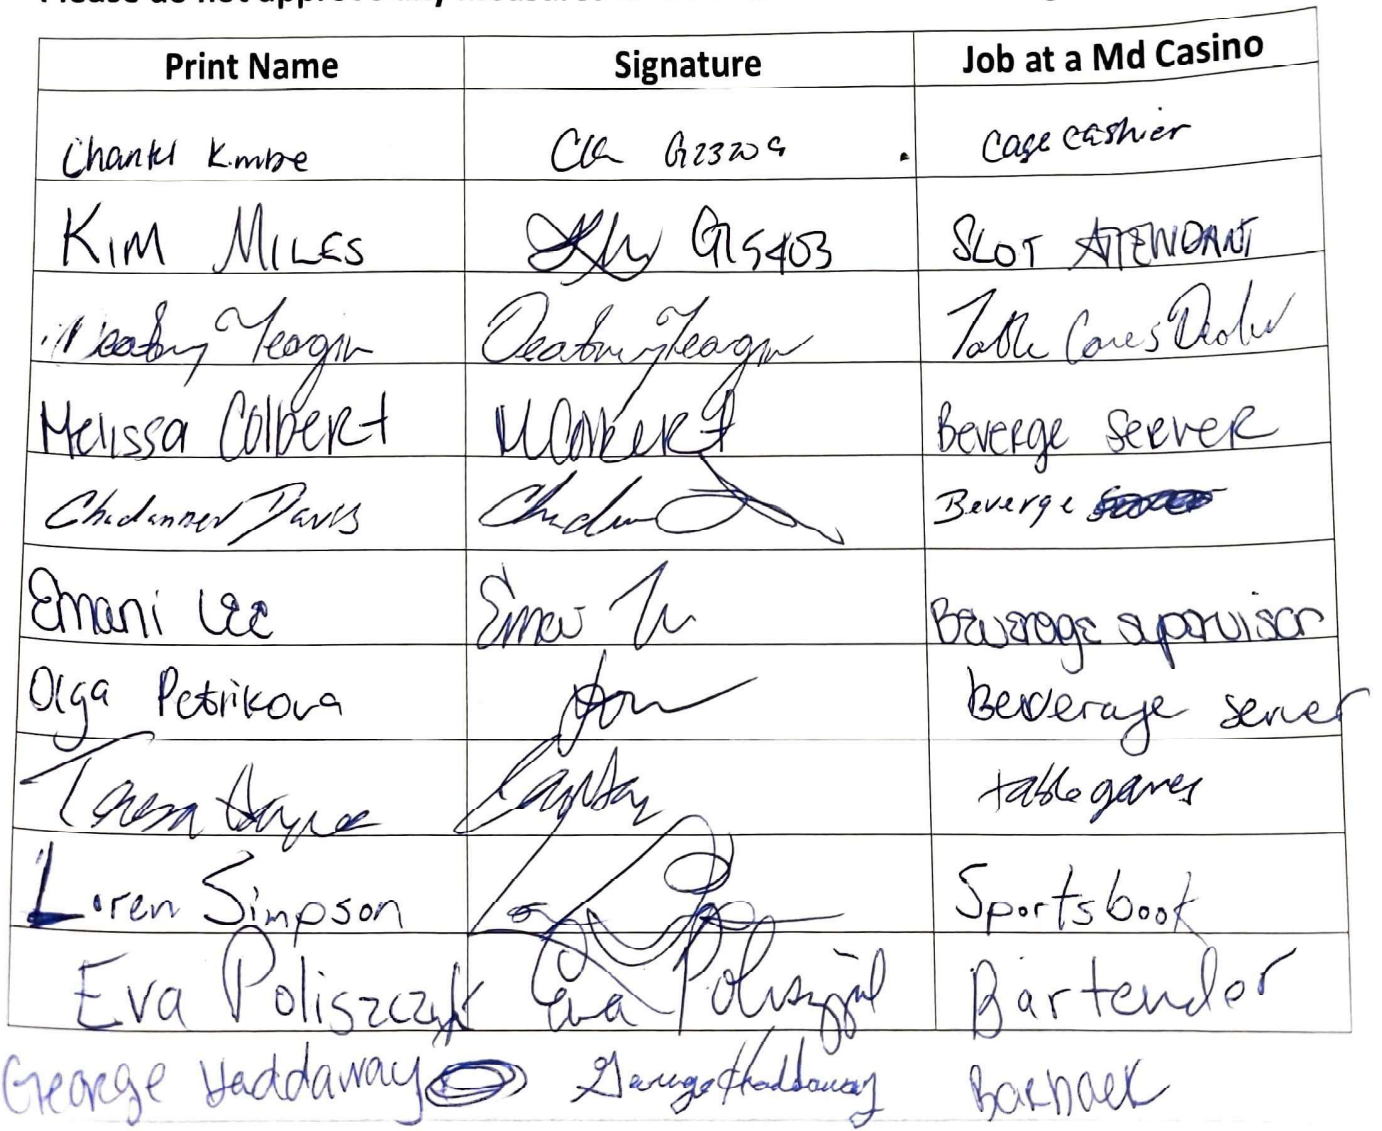 Print Name Signature Job at a Md Casino
Chantel Kimbe G23209 Cage Cashier
KIM MILES G15403 SLOT ATTENDANT
Yeargin Yeargin Table Games Dealer
Melissa Colbert M Colbert Beverge Server
Davis Beverge
Emani Lee Beverage supervisor
Olga Petrikova beverage server
Teresa table games
Loren Simpson Sportsbook
Eva Poliszczyk Eva Bartender
George Haddaway George Haddaway Barback